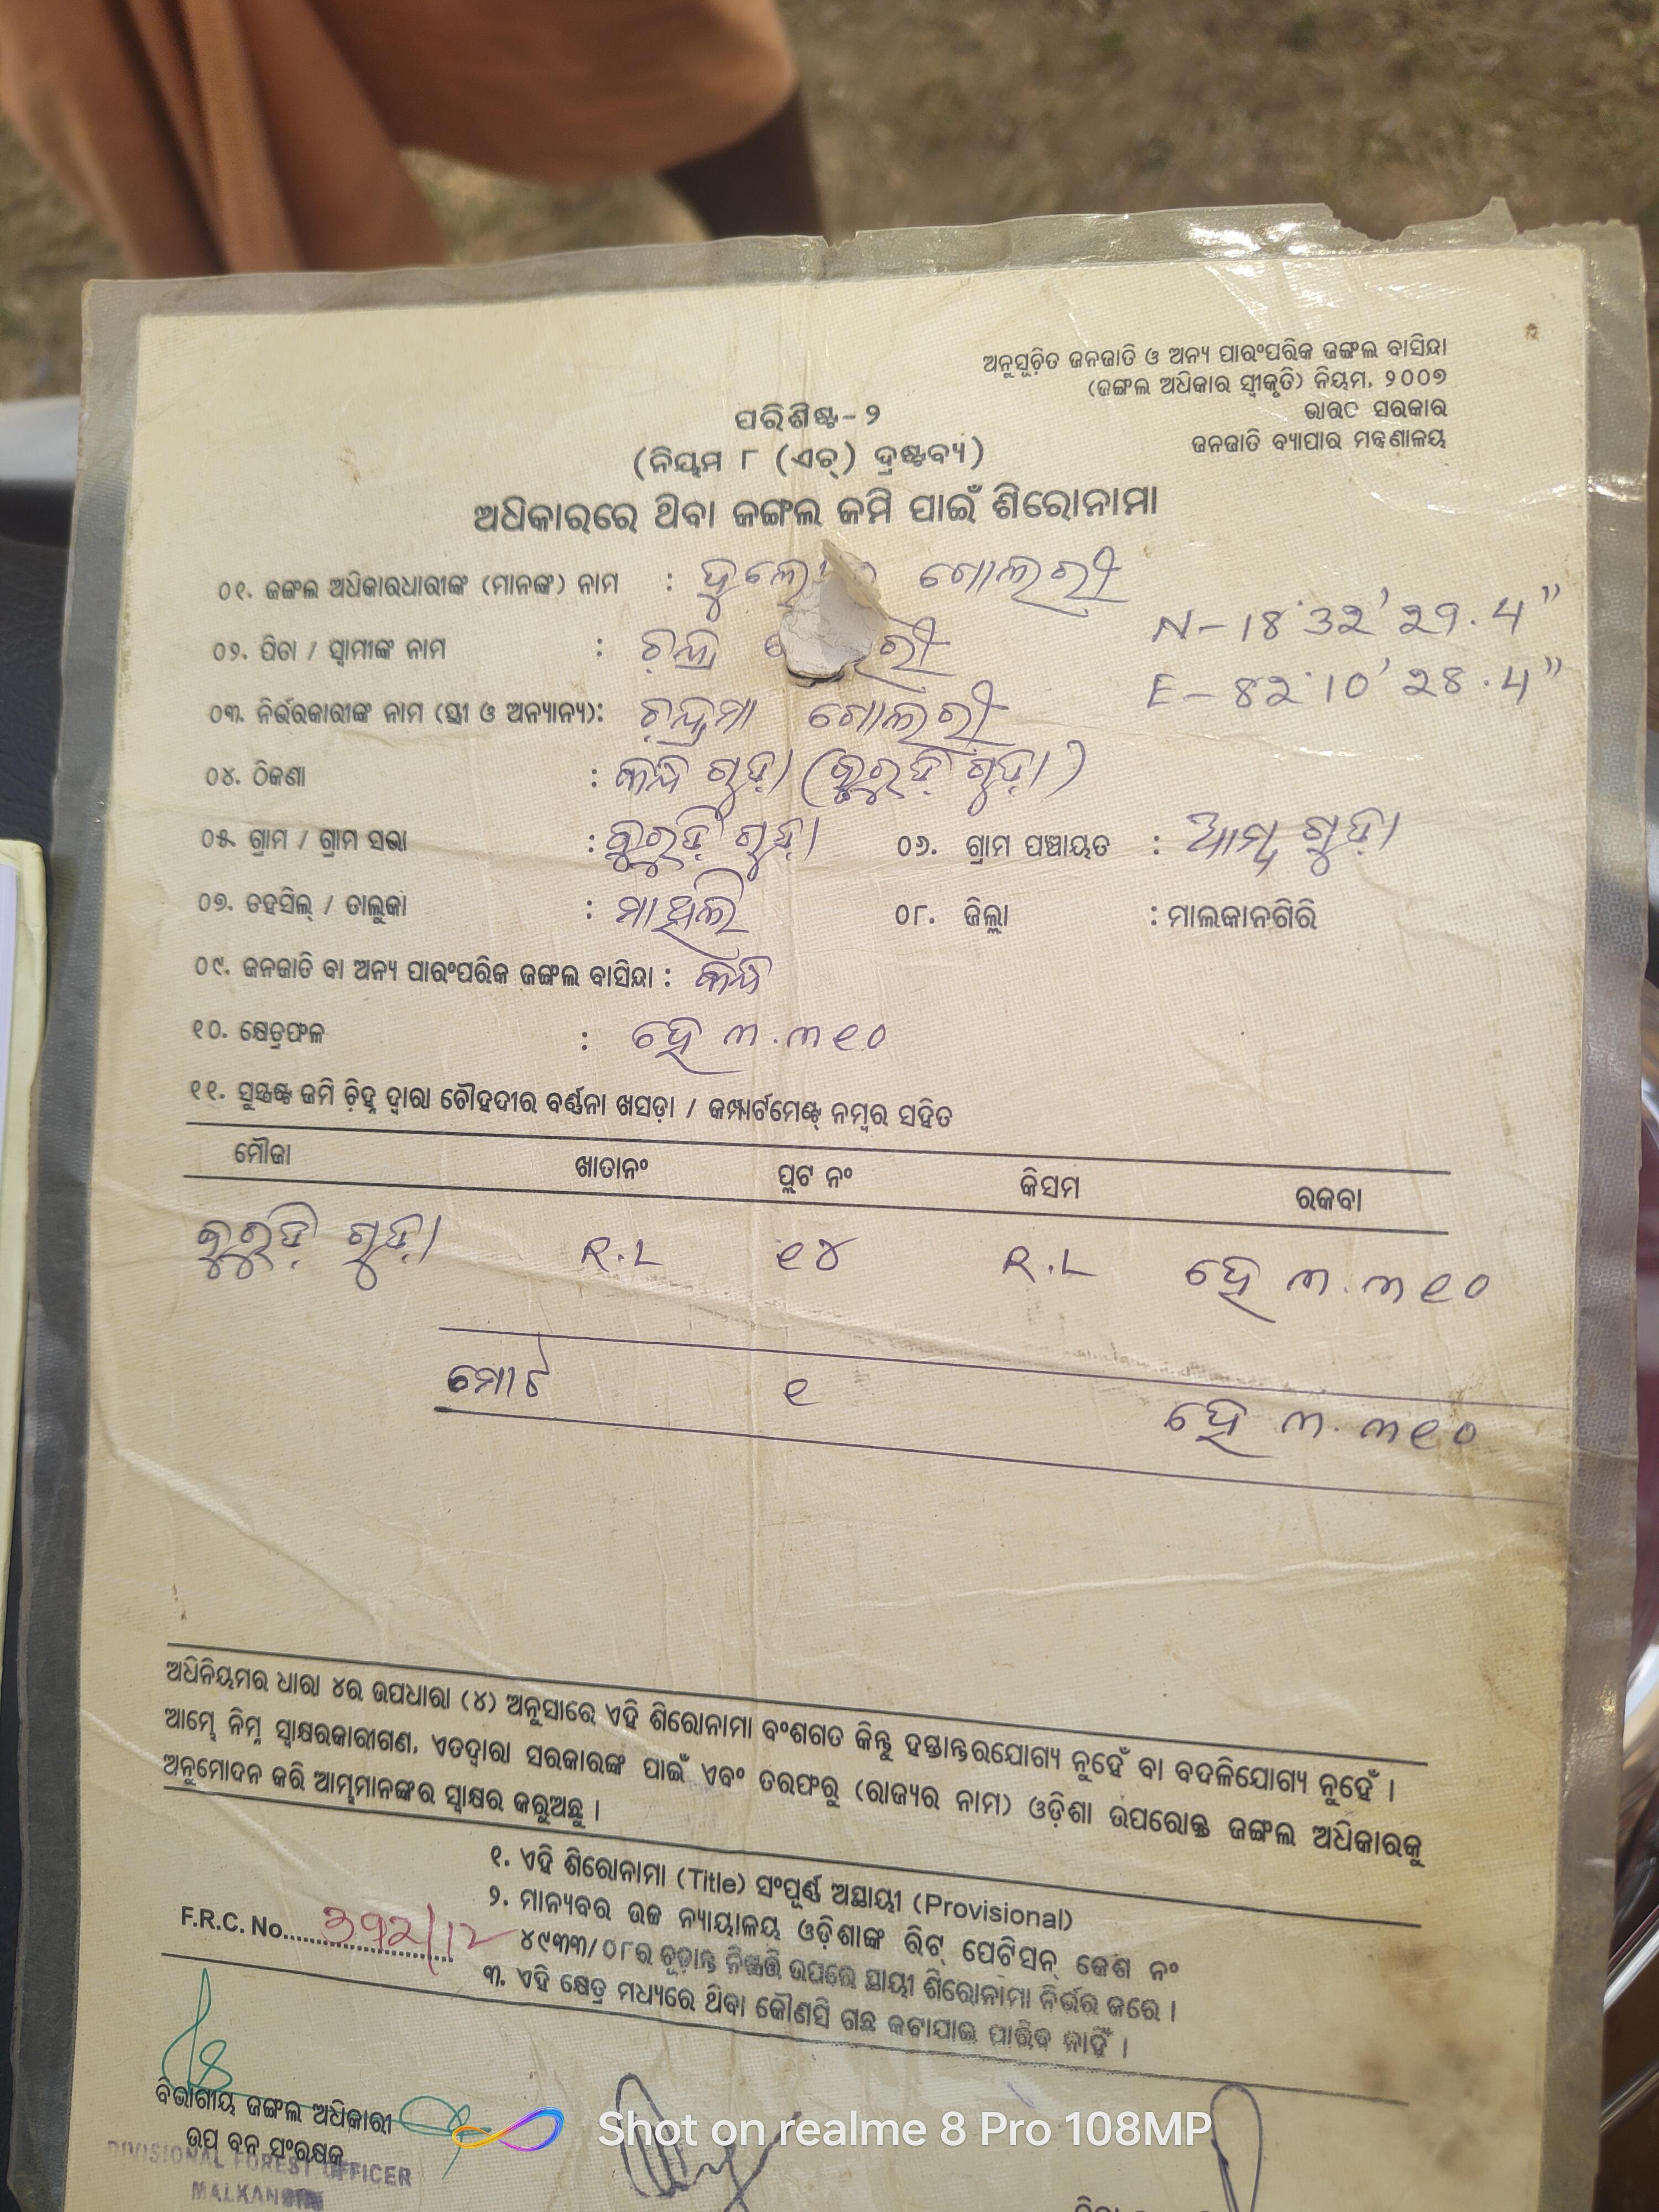 ଅନୁସୂଚିତ ଜନଜାତି ଓ ଅନ୍ୟ ପାରଂପରିକ ଜଙ୍ଗଲ ବାସିନ୍ଦା
(ଜଙ୍ଗଲ ଅଧିକାର ସ୍ୱୀକୃତି) ନିୟମ, ୨୦୦୭
ଭାରତ ସରକାର
ଜନଜାତି ବ୍ୟାପାର ମନ୍ତ୍ରଣାଳୟ
ପରିଶିଷ୍ଟ-୨
(ନିୟମ ୮ (ଏଚ୍) ଦ୍ରଷ୍ଟବ୍ୟ)
ଅଧିକାରରେ ଥିବା ଜଙ୍ଗଲ ଜମି ପାଇଁ ଶିରୋନାମା
୦୧. ଜଙ୍ଗଲ ଅଧିକାରଧାରୀଙ୍କ (ମାନଙ୍କ) ନାମ : ଗୋଲରୀ
N-18°32'29.4"
୦୨. ପିତା / ସ୍ୱାମୀଙ୍କ ନାମ : ଚନ୍ଦ୍ର
E-82°10'28.4"
୦୩. ନିର୍ଭରକାରୀଙ୍କ ନାମ (ସ୍ତ୍ରୀ ଓ ଅନ୍ୟାନ୍ୟ): ଚନ୍ଦ୍ରମା ଗୋଲରୀ
୦୪. ଠିକଣା : କନ୍ଧି ଗୁଡ଼ା (କୁରୁଡ଼ି ଗୁଡ଼ା)
୦୫. ଗ୍ରାମ / ଗ୍ରାମ ସଭା : କୁରୁଡ଼ି ଗୁଡ଼ା ୦୬. ଗ୍ରାମ ପଞ୍ଚାୟତ : ଆମ୍ବ ଗୁଡ଼ା
୦୭. ତହସିଲ୍ / ତାଲୁକା : ମାଥିଲି ୦୮. ଜିଲ୍ଲା : ମାଲକାନଗିରି
୦୯. ଜନଜାତି ବା ଅନ୍ୟ ପାରଂପରିକ ଜଙ୍ଗଲ ବାସିନ୍ଦା : କନ୍ଧି
୧୦. କ୍ଷେତ୍ରଫଳ : ହେ ୩.୩୧୦
୧୧. ସୁସ୍ପଷ୍ଟ ଜମି ଚିହ୍ନ ଦ୍ୱାରା ଚୌହଦୀର ବର୍ଣ୍ଣନା ଖସଡ଼ା / କମ୍ପାର୍ଟମେଣ୍ଟ୍ ନମ୍ବର ସହିତ
ମୌଜା ଖାତାନଂ ପ୍ଲଟ ନଂ କିସମ ରକବା
କୁରୁଡ଼ି ଗୁଡ଼ା R.L ୧୪ R.L ହେ ୩.୩୧୦
ମୋଟ ୧ ହେ ୩.୩୧୦
ଅଧିନିୟମର ଧାରା ୪ର ଉପଧାରା (୪) ଅନୁସାରେ ଏହି ଶିରୋନାମା ବଂଶଗତ କିନ୍ତୁ ହସ୍ତାନ୍ତରଯୋଗ୍ୟ ନୁହେଁ ବା ବଦଳିଯୋଗ୍ୟ ନୁହେଁ ।
ଆମ୍ଭେ ନିମ୍ନ ସ୍ୱାକ୍ଷରକାରୀଗଣ, ଏତଦ୍ୱାରା ସରକାରଙ୍କ ପାଇଁ ଏବଂ ତରଫରୁ (ରାଜ୍ୟର ନାମ) ଓଡ଼ିଶା ଉପରୋକ୍ତ ଜଙ୍ଗଲ ଅଧିକାରକୁ
ଅନୁମୋଦନ କରି ଆମ୍ଭମାନଙ୍କର ସ୍ୱାକ୍ଷର କରୁଅଛୁ ।
୧. ଏହି ଶିରୋନାମା (Title) ସଂପୂର୍ଣ୍ଣ ଅସ୍ଥାୟୀ (Provisional)
୨. ମାନ୍ୟବର ଉଚ୍ଚ ନ୍ୟାୟାଳୟ ଓଡ଼ିଶାଙ୍କ ରିଟ୍ ପେଟିସନ୍ କେଶ ନଂ
୪୯୩୩/୦୮ର ଚୂଡ଼ାନ୍ତ ନିଷ୍ପତ୍ତି ଉପରେ ସ୍ଥାୟୀ ଶିରୋନାମା ନିର୍ଭର କରେ ।
F.R.C. No. 392/12
୩. ଏହି କ୍ଷେତ୍ର ମଧ୍ୟରେ ଥିବା କୌଣସି ଗଛ କଟାଯାଇ ପାରିବ ନାହିଁ ।
ବିଭାଗୀୟ ଜଙ୍ଗଲ ଅଧିକାରୀ
ଉପ ବନ ସଂରକ୍ଷକ
DIVISIONAL FOREST OFFICER
Shot on realme 8 Pro 108MP